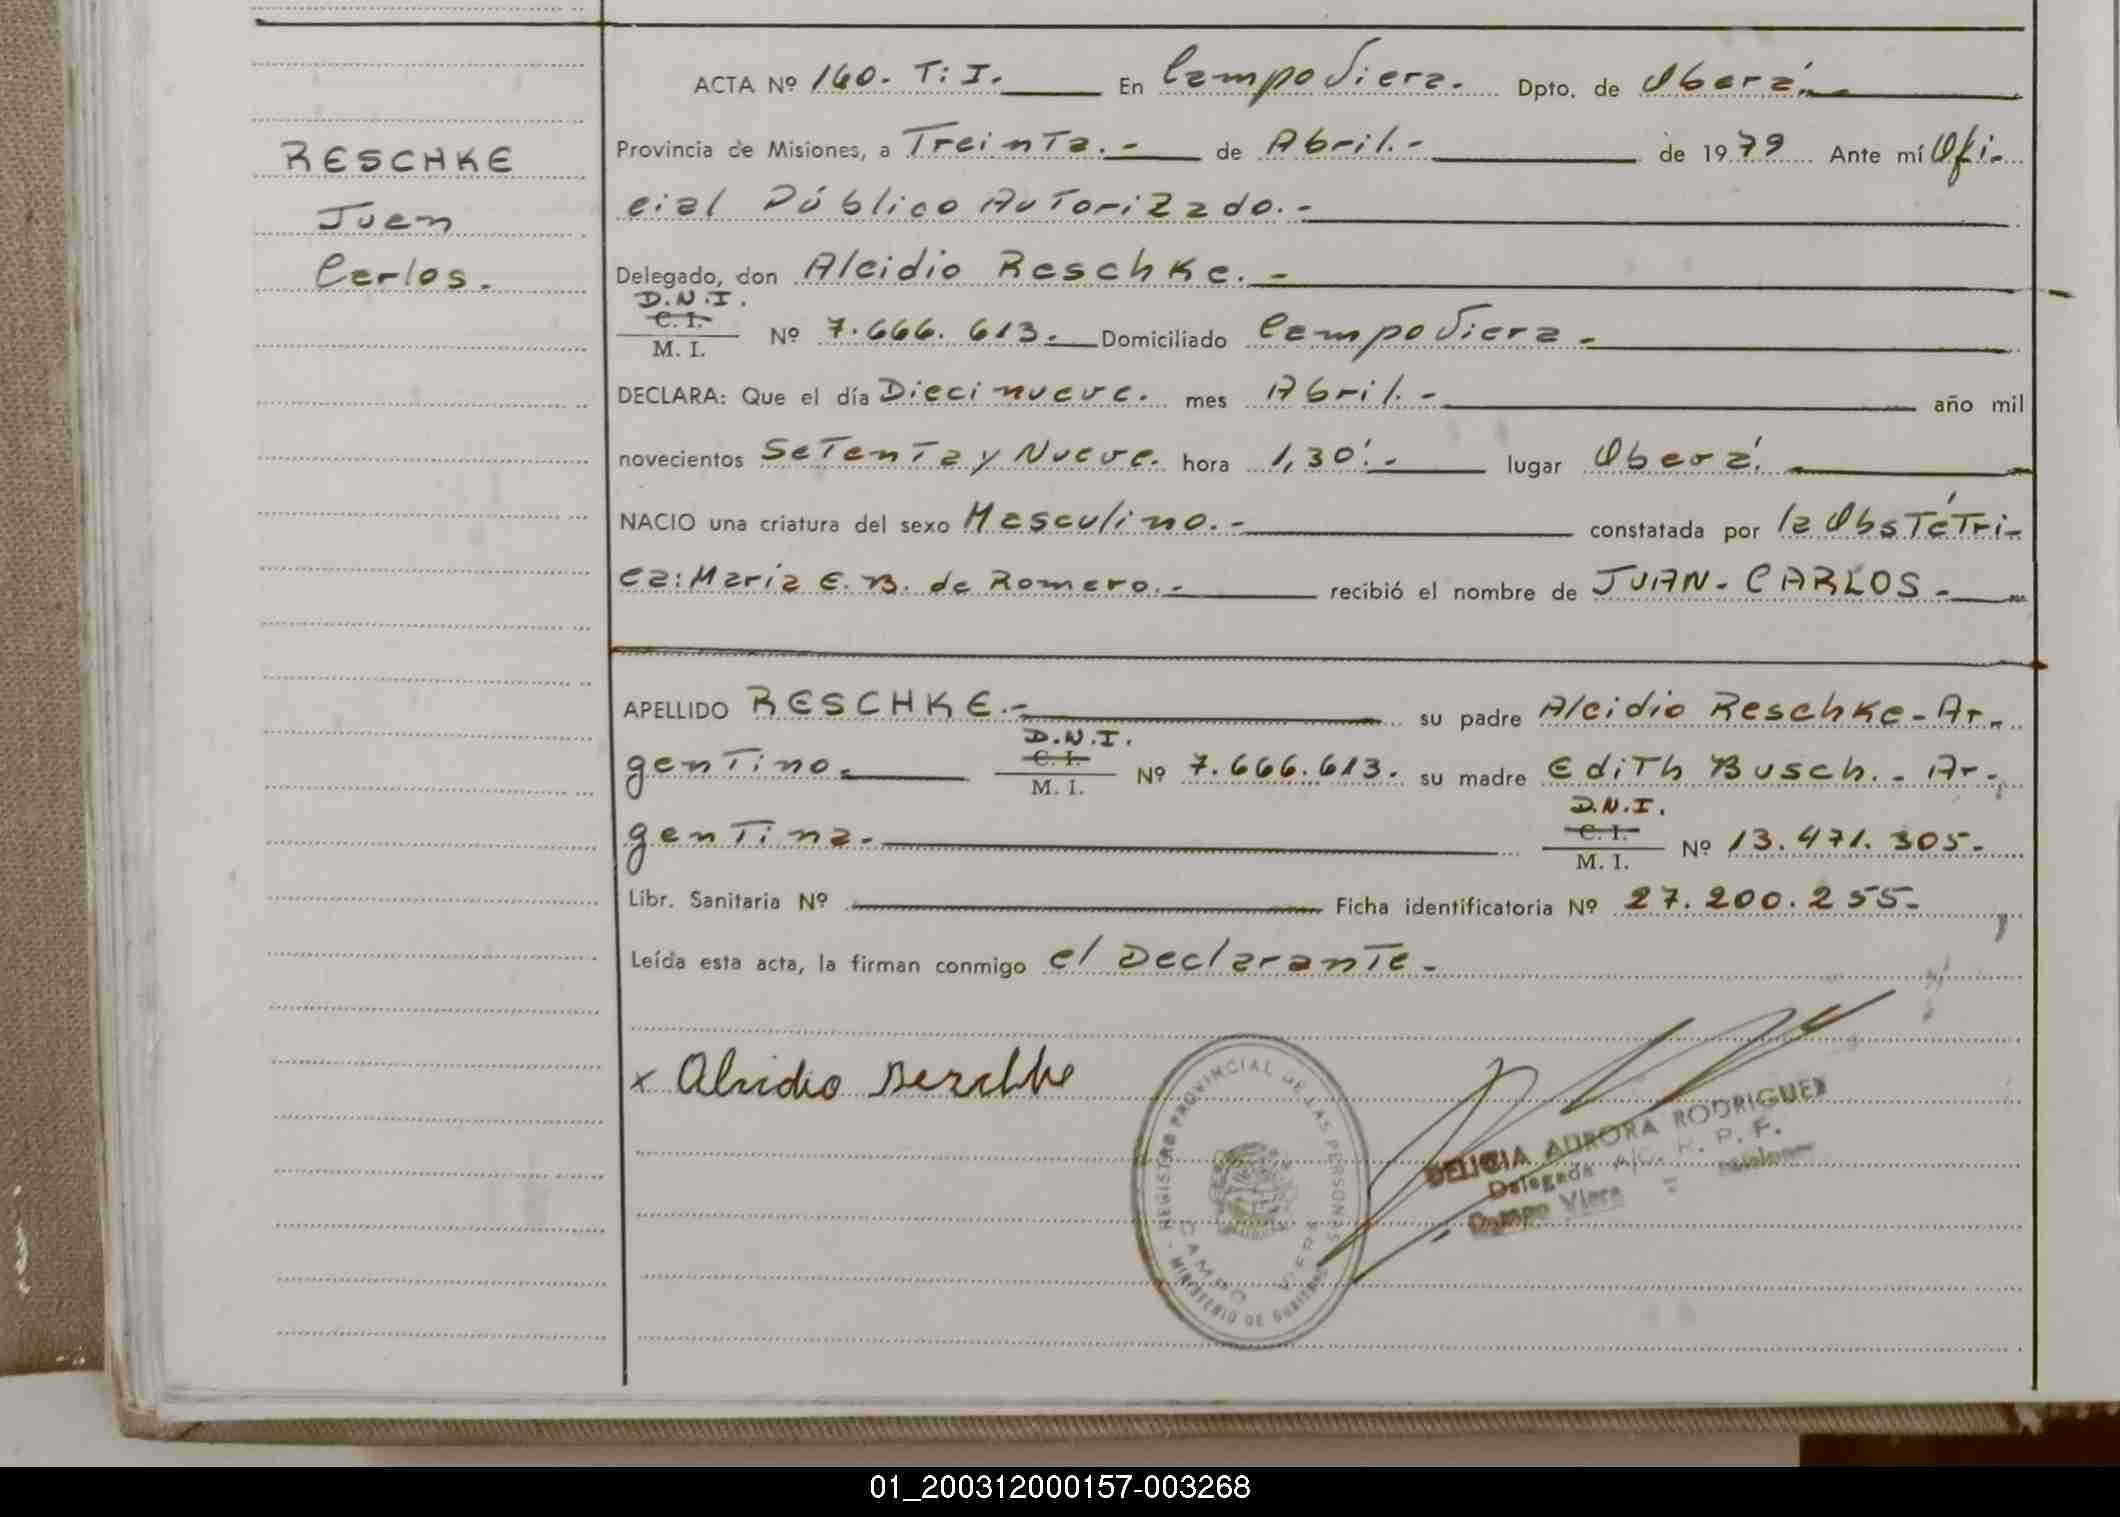 ACTA Nº 160. T: I. En Campo Viera. Dpto. de Oberá.
Provincia de Misiones, a Treinta.- de Abril.- de 1979 Ante mí Ofi-
cial Público Autorizado.-
RESCHKE
Juan
Carlos.
Delegado, don Alcidio Reschke.-
D.N.I.
C. I.
M. I.
Nº 7.666.613.- Domiciliado Campo Viera-
DECLARA: Que el día Diecinueve. mes Abril.- año mil
novecientos Setenta y Nueve. hora 1,30'.- lugar Oberá.
NACIO una criatura del sexo Masculino.- constatada por la Obstétri-
ca: María E. B. de Romero.- recibió el nombre de JUAN-CARLOS-
APELLIDO RESCHKE.- su padre Alcidio Reschke-Ar-
D.N.I.
gentino. C. I.
M. I.
Nº 7.666.613. su madre Edith Busch.-Ar-
D.N.I.
gentina.- C. I.
M. I.
Nº 13.471.305-
Libr. Sanitaria Nº Ficha identificatoria Nº 27.200.255-
Leída esta acta, la firman conmigo el Declarante-
x Alcidio Reschke
REGISTRO PROVINCIAL DE LAS PERSONAS
CAMPO VIERA
MINISTERIO DE GOBIERNO
DELICIA AURORA RODRIGUEZ
Delegada A/C. R. P. F.
Campo Viera - Misiones
01_200312000157-003268